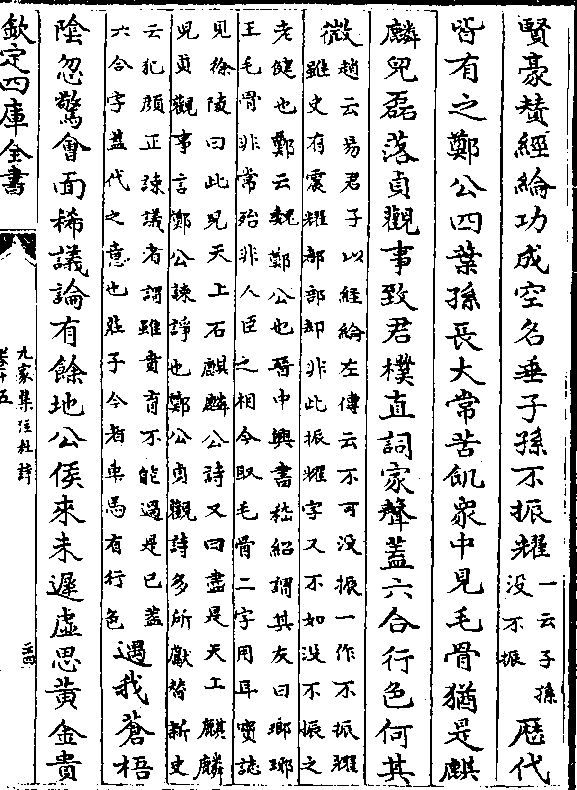 賢豪贊經綸功成空名垂子孫不振耀一云子孫没不振歷代
皆有之鄭公四葉孫長大常苦飢衆中見毛骨猶是麒
麟兒磊落貞觀事致君樸直詞家聲蓋六合行色何其
微趙云易君子以經綸左傳云不可没振一作不振耀
雖史有震耀都鄙却非此振耀字又不如没不振之
老健也鄭云魏鄭公也晉中興書嵇紹謂其友曰瑯琊
王毛骨非常殆非人臣之相今取毛骨二字用耳寶誌
見徐陵曰此兒天上石麒麟公詩又曰盡是天上麒麟
兒貞觀事言鄭公諫諍也鄭公貞觀詩多所獻替新史
云犯顔正諫議者謂雖賁育不能過是已蓋
六合字蓋代之意也莊子今者車馬有行色過我蒼梧
陰忽驚會面稀議論有餘地公侯來未遲虛思黃金貴
欽定四庫全書
九家集注杜詩
卷十五